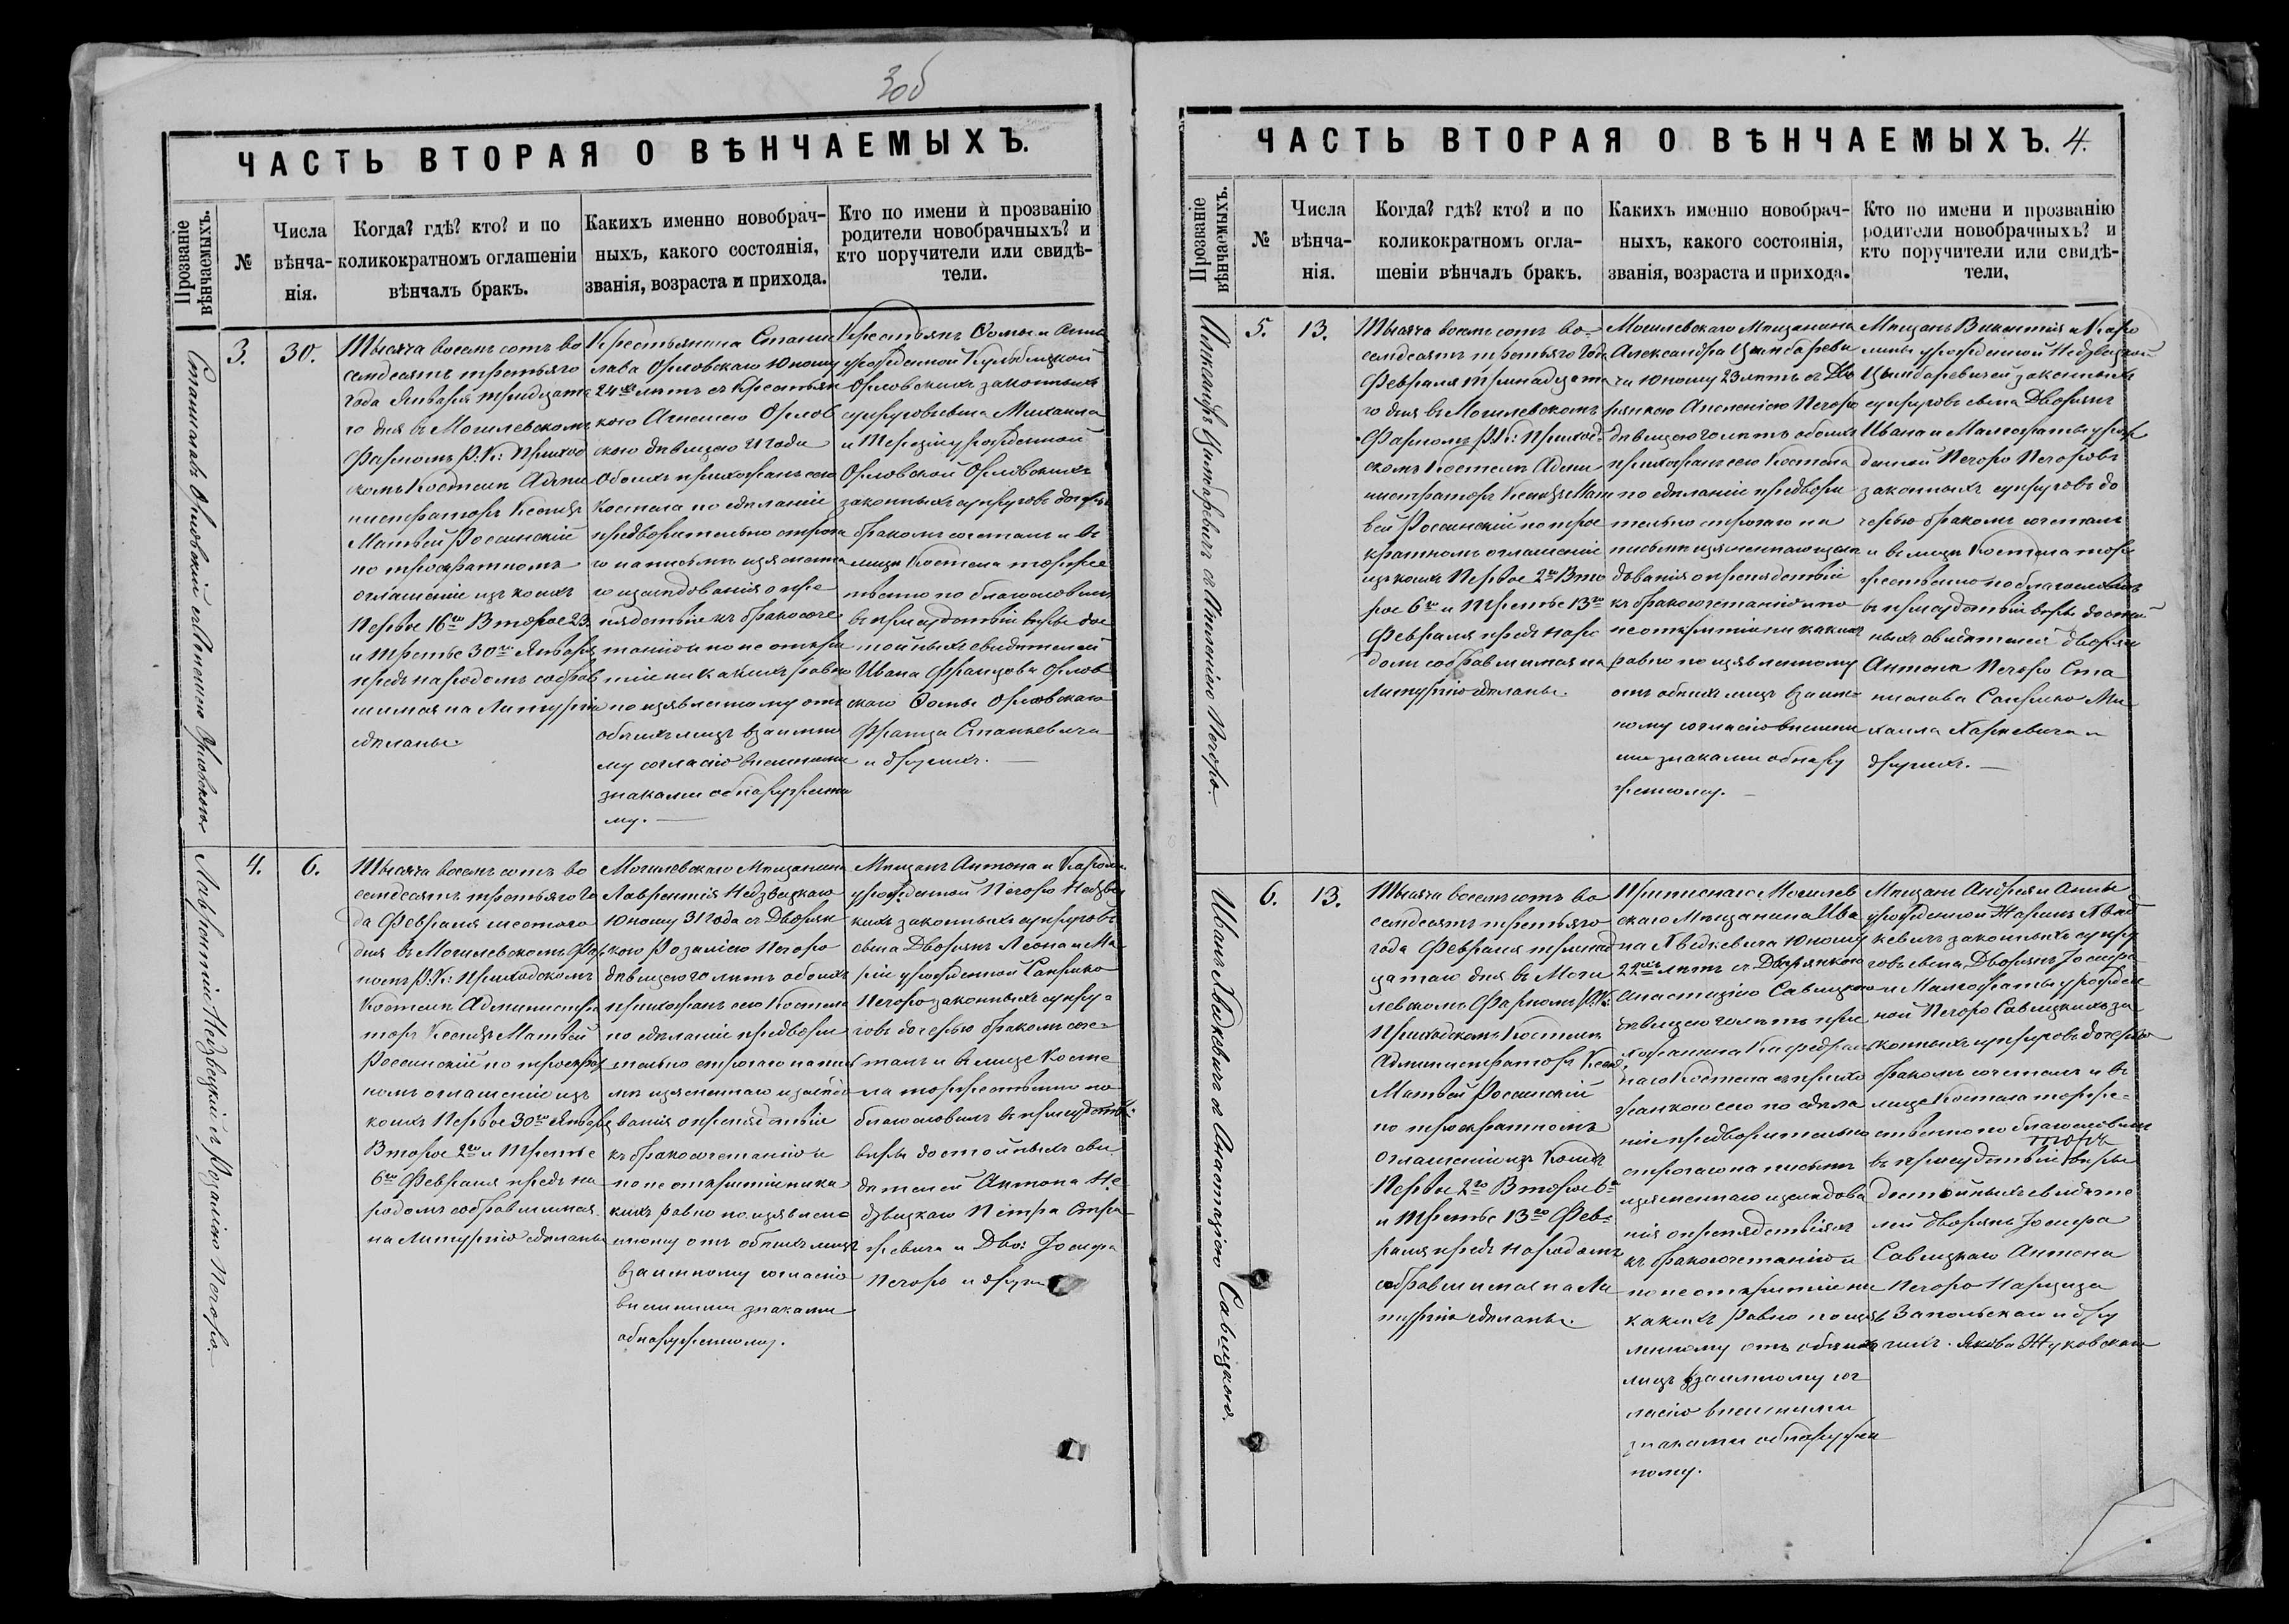 3об
ЧАСТЬ ВТОРАЯ О ВѢНЧАЕМЫХЪ.
Прозваніе
вѣнчаемыхъ.
№
Числа
вѣнча-
нія.
Когда? гдѣ? кто? и по
коликократномъ оглашеніи
вѣнчалъ бракъ.
Какихъ именно новобрач-
ныхъ, какого состоянія,
званія, возраста и прихода.
Кто по имени и прозванію
родители новобрачныхъ? и
кто поручители или свидѣ-
тели.
Станиславъ Орловскій съ Агнешкою Орловскою
3.
30.
Тысяча восемь сотъ во
семдесятъ третьяго
года Января тридцата
го дня въ Могилевскомъ
Фарномъ Р: К: Приход
скомъ Костелѣ Адми
нистраторъ Ксендзъ
Матвей Россинскій
по троекратномъ
оглашеніи изъ коихъ
Первое 16го Второе 23.
и Третье 30го Января
предъ народомъ собрав
шимся на Литургію
сдѣланы
Крестьянина Станис
лава Орловскаго Юношу
24хъ лѣтъ съ Крестьян
кою Агнешкою Орлов
скою дѣвицею 21 года
обоихъ прихожанъ сего
Костела по сдѣланіи
предварительно строга
го на письмѣ изясненна
го изслѣдованія о пре
пятствіи къ бракосоче
танію и по не откры
тіи никакихъ равно
по изявленному отъ
обоихъ лицъ взаимно
му согласію внешними
знаками обнаруженно
му.
Крестьянъ Ѳомы и Анны
урожденной
Орловскихъ законныхъ
супруговъ сына Михаила
и Терезіи урожденной
Орловской Орловскихъ
законныхъ супруговъ дочерь
бракомъ сочеталъ и въ
лицѣ Костела торже
твенно по благословилъ
въ присудствіи вѣры дос
тойныхъ свидѣтелей
Ивана Францова Орлов
скаго Ѳомы Орловскаго
Франца Станкевича
и другихъ.
Лаврентій Недзвецкій съ Розалією Печоро.
4.
6.
Тысяча восемь сотъ во
семдесятъ третьяго Го
да Февраля шестого
дня въ Могилевскомъ Фар
номъ Р: К: Приходскомъ
Костелѣ Администра
торъ Ксендзъ Матвей
Россинскій по троекрат
номъ оглашеніи изъ
коихъ Первое 30го Января
Второе 2го и Третье
6го Февраля предъ на
родомъ собравшимся
на Литургію сдѣланы
Могилевскаго Мѣщанина
Лаврентія Недзвецкаго
Юношу 31 года съ Дворян
кою Розалією Печоро
дѣвицею лѣтъ обоихъ
прихожанъ сего Костела
по сдѣланіи предвари
тельно строгаго на пись
мѣ изясненнаго изслѣдо
ванія о препятствіи
къ бракосочетанію и
по не открытіи ника
кихъ равно по изявлен
нному отъ обоихъ лицъ
взаимному согласію
внешними знаками
обнаруженному.
Мѣщанъ Антона и Кароли
урожденной Печоро Недзвец
кихъ законныхъ супруговъ
сына Дворянъ Леона и Ма
ріи урожденной Сапѣжко
Печоро законныхъ супру
говъ дочерью бракомъ соче
талъ и въ лице Косте
ла торжественно по
благословилъ въ присудств:
вѣры достойныхъ сви
дѣтелей Антона Не
дзвецкаго Петра
и Дво: Іосифа
Печоро и други
ЧАСТЬ ВТОРАЯ О ВѢНЧАЕМЫХЪ.
4.
Прозваніе
вѣнчаемыхъ.
№
Числа
вѣнча-
нія.
Когда? гдѣ? кто? и по
коликократномъ огла-
шеніи вѣнчалъ бракъ.
Какихъ именно новобрач-
ныхъ, какого состоянія,
званія, возраста и прихода.
Кто по имени и прозванію
родители новобрачныхъ? и
кто поручители или свидѣ-
тели.
Александръ Цимбаревичъ съ Апленією Печоро.
5.
13.
Тысяча восемь сотъ во-
семдесятъ третьяго Года
Февраля тринадцата
го дня въ Могилевскомъ
Фарномъ Р: К: Приход-
скомъ Костелѣ Адми
нистраторъ Ксендзъ Мат
вей Россинскій по трое
кратномъ оглашеніи
изъ коихъ Первое 2го Вто
рое 6го и Третье 13го
Февраля предъ наро
домъ собравшимся на
Литургію сдѣланы.
Могилевскаго Мѣщанина
Александра Цимбареви
ча Юношу 23 лѣтъ съ Дво
рянкою Апленією Печоро
дѣвицею лѣтъ обоихъ
прихожанъ сего Костела
по сдѣланіи предвари
тельно строгаго на
письмѣ изясненнаго изслѣ
дованія о препятствіи
къ бракосочетанію и по
не открытіи никакихъ
равно по изявленному
отъ обоихъ лицъ взаим-
ному согласію внешни
ми знаками обнару
женному.
Мѣщанъ Викентія и Каро
лины урожденной Недзвецкой
Цымбаревичей законныхъ
супруговъ сына Дворянъ
Ивана и Малгораты урож
денной Печоро Печоровъ
законныхъ супруговъ до
черью бракомъ сочеталъ
и въ лицѣ Костела торже
жественно по благословилъ
въ присудствіи вѣры достой
ныхъ свидѣтелей дворянъ
Антона Печоро Ста
нислава Сапѣжко Ми
хаила Харкевича и
другихъ.
Иванъ Хвадкевичъ съ Анастазією Савицкою.
6.
13.
Тысяча восемь сотъ во
семдесятъ третьяго
года Февраля тринад
цатаго дня въ Моги
левскомъ Фарномъ Р: К:
Приходскомъ Костелѣ
Администраторъ Ксенд.
Матвей Россинскій
по троекратномъ
оглашеніи изъ коихъ
Первое 2го Второе 6го
и Третье 13го Фев-
раля предъ народомъ
собравшимся на Ли
тургію сдѣланы.
скаго Мѣщанина Ива
на Хвадкевича Юношу
22хъ лѣтъ съ Дворянкою
Анастазією Савицкою
дѣвицею лѣтъ при
хожанина Катедраль
наго Костела съ прихо
жанкою сего по сдѣла
ніи предварительно
строгаго на письмѣ
изясненнаго изслѣдова
нія о препятствіяхъ
къ бракосочетанію и
по не открытіи ни
какихъ равно по изяв
ленному отъ обоихъ
лицъ взаимному сог
ласію внешними
знаками обнаружен
ному.
Мѣщанъ Андрея и Анны
урожденной Хвад
кевичъ законныхъ супру
говъ сына Дворянъ Іосифа
и Малгораты урожден
ной Печоро Савицкихъ за
конныхъ супруговъ дочерью
бракомъ сочеталъ и въ
лице Костела торже-
ственно по благословилъ
въ присудствіи вѣры
достойныхъ свидѣте
лей дворянъ Іосифа
Савицкаго Антона
Печоро Нарциза
Запольскаго и дру
гихъ. Якова Жуковскаго